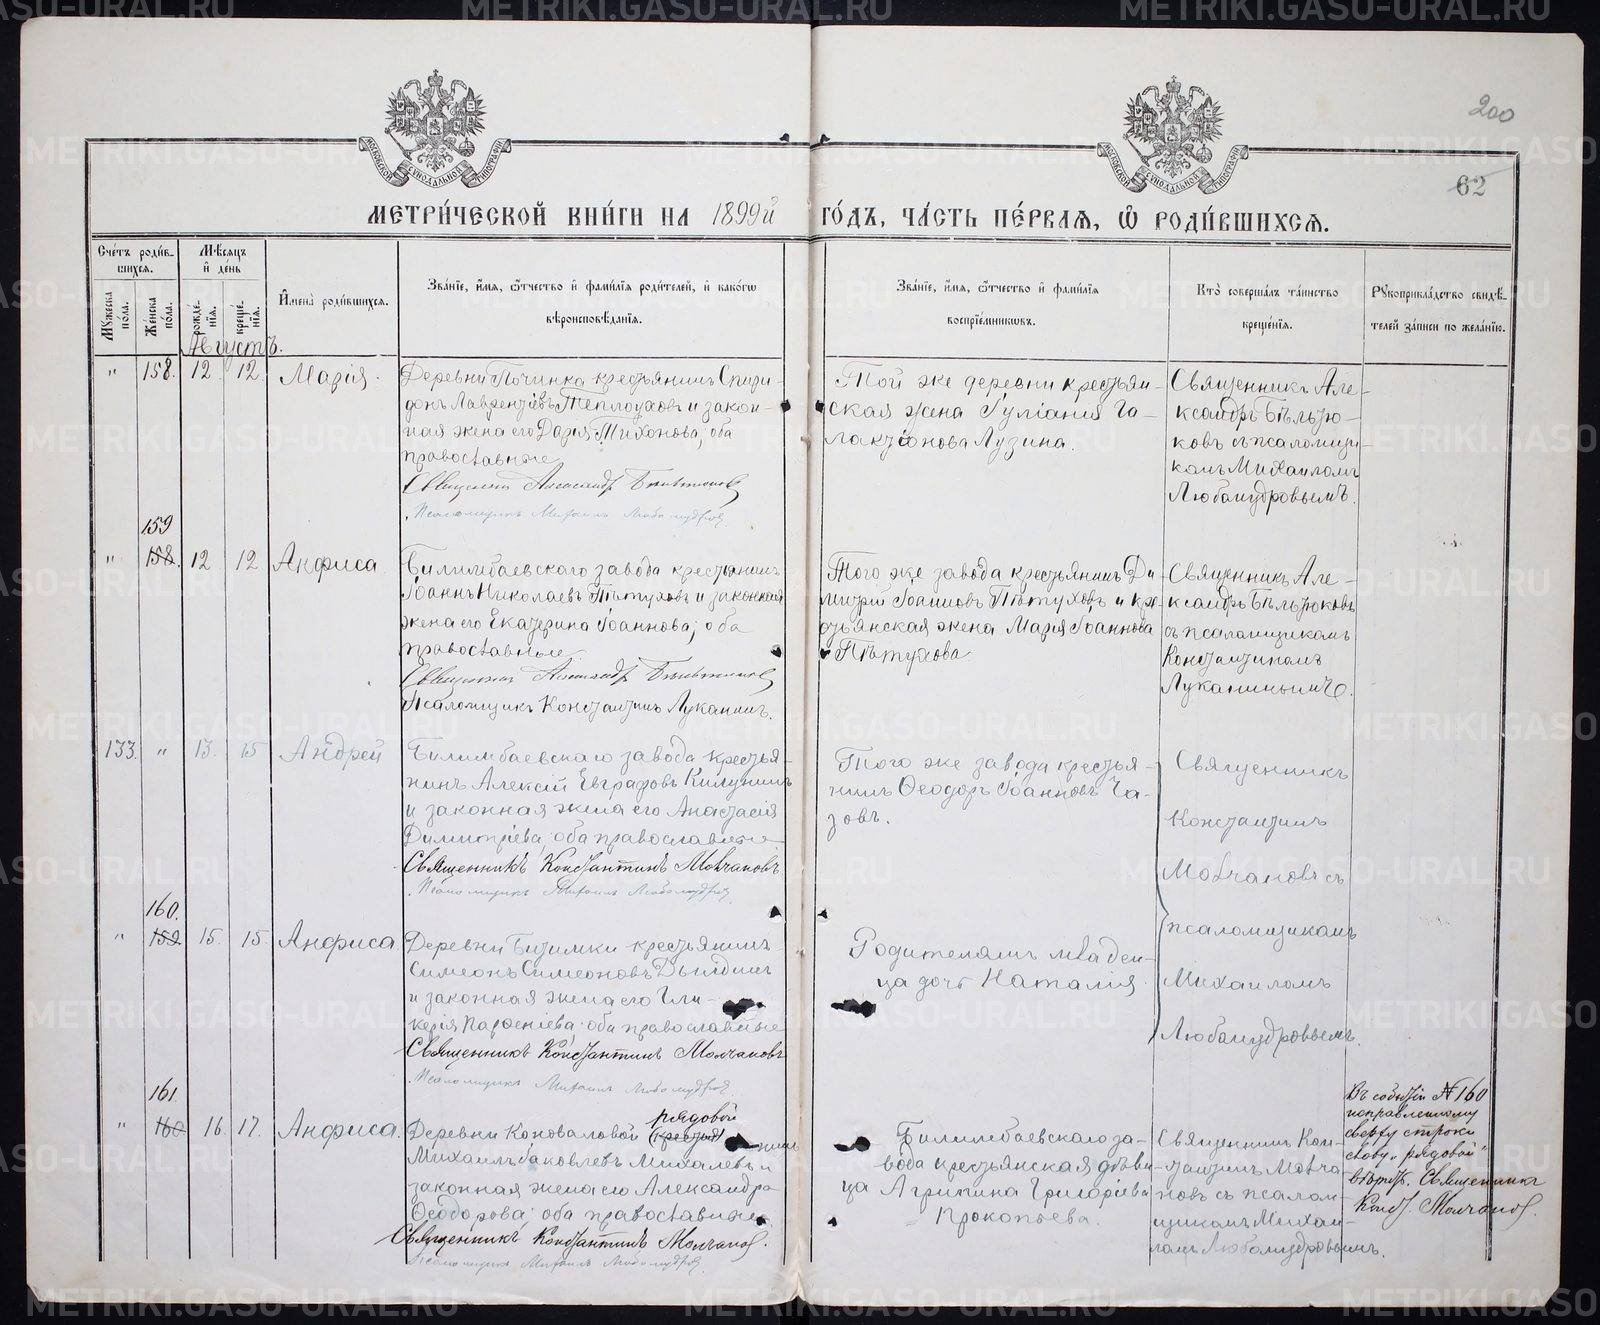 200
62
МОСКОВСКОЙ СѴНОДАЛЬНОЙ ТИПОГРАФІИ
МОСКОВСКОЙ СѴНОДАЛЬНОЙ ТИПОГРАФІИ
МЕТРИ́ЧЕСКОЙ КНИ́ГИ НА 1899й ГО́ДЪ, ЧА́СТЬ ПЕ́РВАѦ, Ѡ҆ РОДИ́ВШИХСѦ.
Сче́тъ роди́вшихсѧ.
Мꙋ́жеска по́ла.
Же́нска по́ла.
Мѣ́сѧцъ и҆ де́нь
рожде́нїѧ.
креще́нїѧ.
И҆мена̀ роди́вшихсѧ.
Зва́нїе, и҆́мѧ, ѻ҆́тчество и҆ фами́лїѧ роди́телей, и҆ како́гѡ
вѣроисповѣ́данїѧ.
Зва́нїе, и҆́мѧ, ѻ҆́тчество и҆ фами́лїѧ
воспрїе́мниковъ.
Кто̀ соверша́лъ та́инство
креще́нїѧ.
Рꙋкоприкла́дство свидѣ́-
телей за́писи по жела́нїю.
Августъ.
" 158. 12 12. Марія.
Деревни Починка крестьянинъ Спири-
донъ Лаврентіевъ Теплоуховъ и закон-
ная жена его Дарія Михонова, оба
православные
Священникъ Александръ Бѣлтюковъ
Псаломщикъ Михаилъ Любомудровъ
Той же деревни крестьян-
ская жена Іуліанія Га-
лактіонова Лузина.
Священникъ Але-
ксандръ Бѣльтю-
ковъ съ псаломщи-
комъ Михаиломъ
Любомудровымъ.
159
" 158. 12 12 Анфиса
Билимбаевскаго завода крестьянинъ
Іоаннъ Николаевъ Пѣтуховъ и законная
жена его Екатерина Іоаннова, оба
православные
Священникъ Александръ Бѣлтюковъ
Псаломщикъ Константинъ Луканинъ.
Того же завода крестьянинъ Ди-
митрій Іоанновъ Пѣтуховъ и кре-
стьянская жена Марія Іоаннова
Пѣтухова
Священникъ Але-
ксандръ Бѣльтюковъ
съ псаломщикомъ
Константиномъ
Луканинымъ.
133. " 13. 15 Андрей
Билимбаевскаго завода крестья-
нинъ Алексій Евграфовъ Килунинъ
и законная жена его Анастасія
Димитріева, оба православные
Священникъ Константинъ Молчановъ
Псаломщикъ Михаилъ Любомудровъ
Того же завода крестья-
нинъ Ѳеодоръ Іоанновъ Ча-
зовъ.
Священникъ
Константинъ
Молчановъ съ
псаломщикомъ
Михаиломъ
Любомудровымъ.
160.
" 159. 15. 15. Анфиса
Деревни Битимки крестьянинъ
Симеонъ Симеоновъ Дылдинъ
и законная жена его Гли-
керія Парѳеніева оба православные
Священникъ Константинъ Молчановъ
Псаломщикъ Михаилъ Любомудровъ
Родителямъ младен-
ца дочь Наталія.
161
" 160 16. 17. Анфиса.
рядовой
Деревни Коноваловой (крестья)нинъ
Михаилъ Іаковлевъ Михалевъ и
законная жена его Александра
Ѳеодорова, оба православные
Священникъ Константинъ Молчановъ.
Псаломщикъ Михаилъ Любомудровъ.
Билимбаевскаго за-
вода крестьянская дѣви-
ца Агрипина Григоріева
Прокопьева.
Священникъ Кон-
стантинъ Молча-
новъ съ псалом-
щикомъ Михаи-
ломъ Любомудровымъ.
Въ событіи № 160
исправленному
сверху строки
слову „рядовой"
вѣрить. Священникъ
Конст. Молчановъ.
METRIKI.GASO-URAL.RU